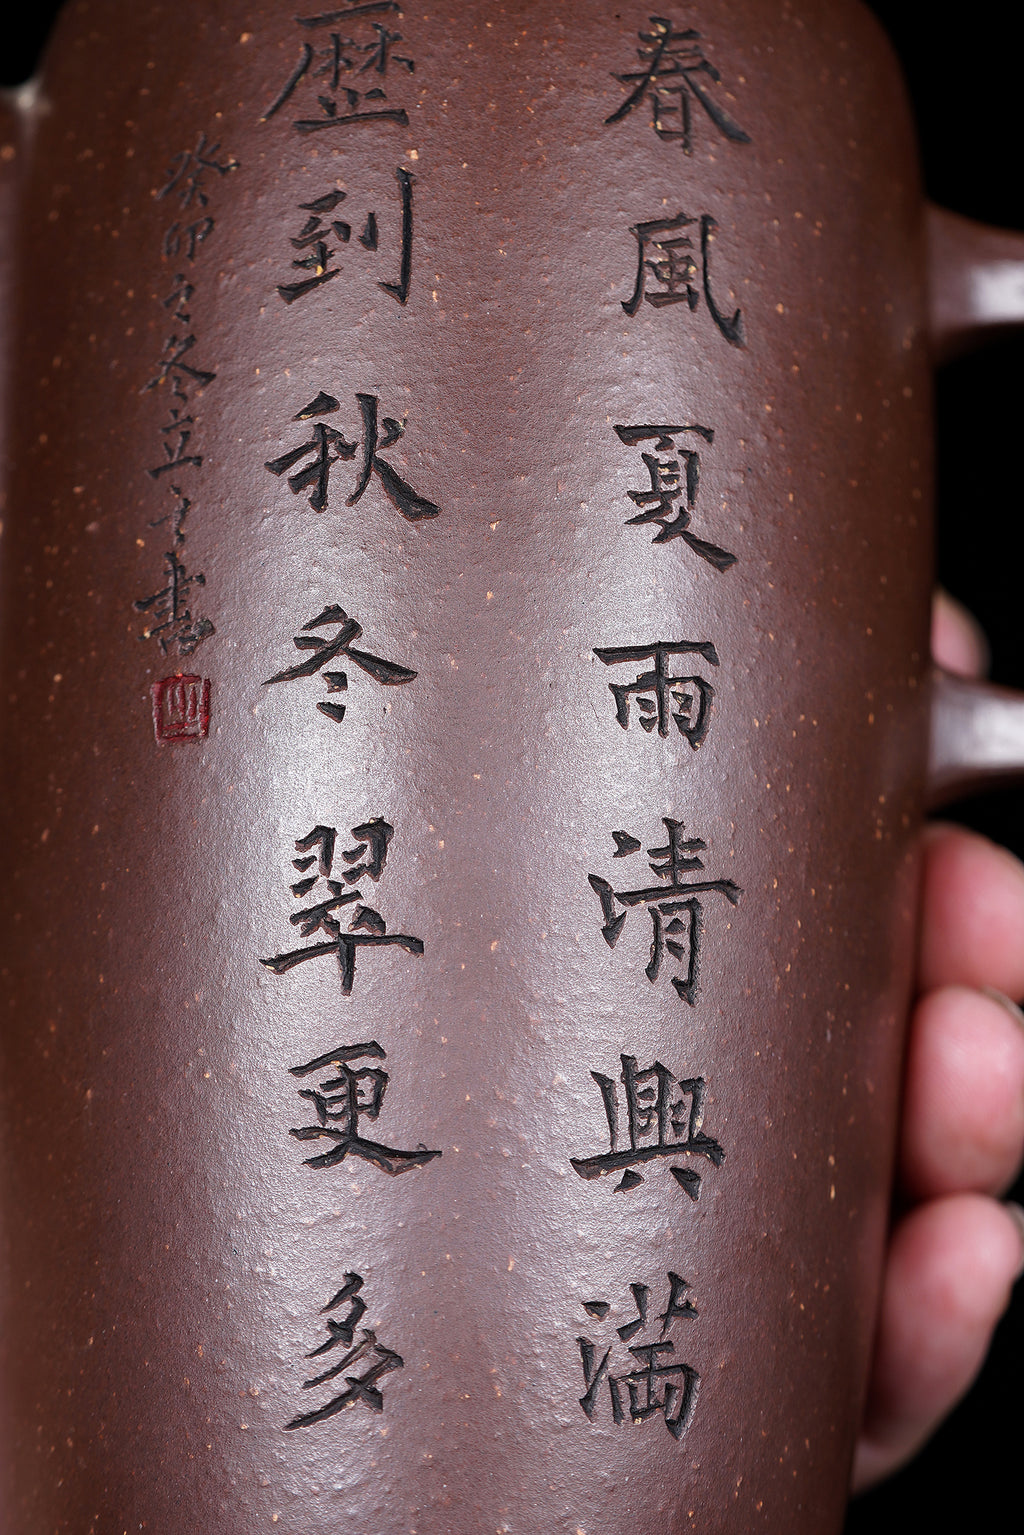 春風夏雨清興滿
歷到秋冬翠更多
癸卯之冬立書